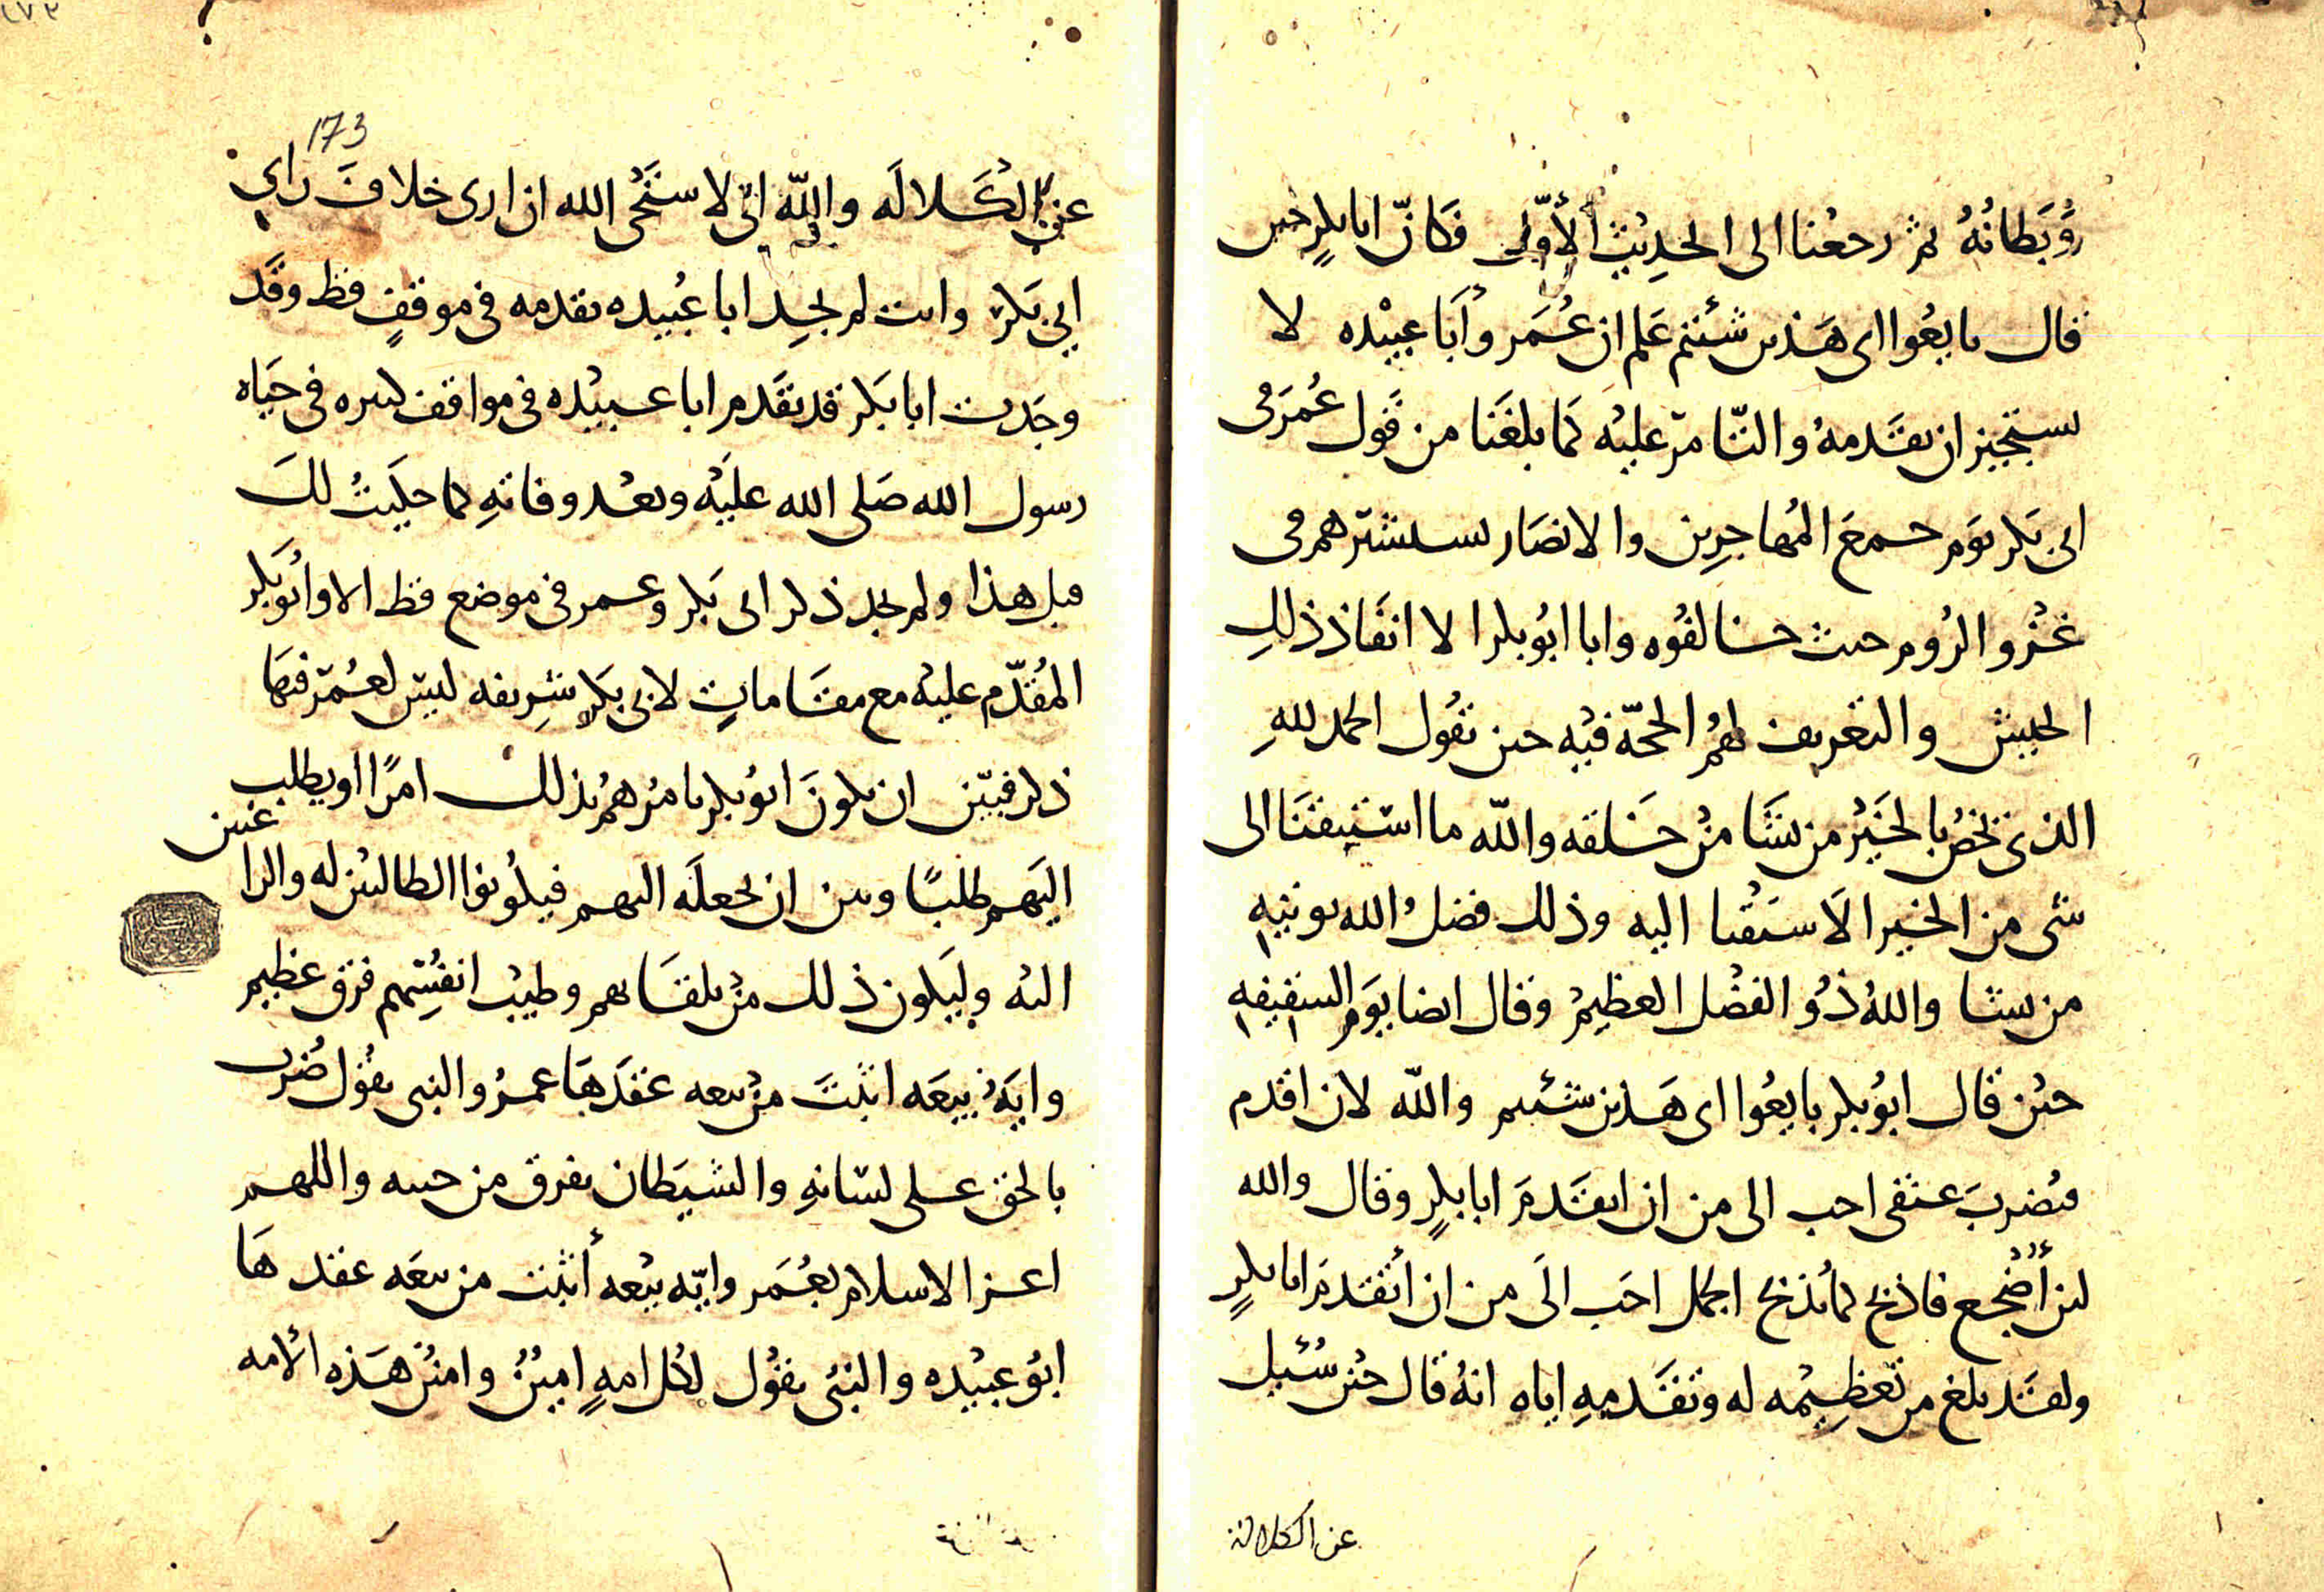 وبطانه ثم رجعنا الى الحديث الأول فكان ابا بكر حين
قال بايعوا اى هذين شئتم علم ان عمر وأبا عبيده لا
يستجيز ان يتقدمه والتامر عليه كما بلغنا من قول عمر فى
ابى بكر يوم جمع المهاجرين والانصار يستشيرهم فى
غزو الروم حيث خالفوه وابا ابو بكر الا انفاذ ذلك
الجيش والتعريف لهم الحجة فيه حين يقول الحمد لله
الذى يخص بالخير من يشا من خلقه والله ما استبقنا الى
شى من الخير الا سبقنا اليه وذلك فضل الله يوتيه
من يشا والله ذو الفضل العظيم وقال ايضا يوم السقيفه
حين قال ابو بكر بايعوا اى هذين شئتم والله لان اقدم
فتضرب عنقى احب الى من ان اتقدم ابا بكر وقال والله
لئن أضجع فاذبح كما يذبح الجمل احب الى من ان أتقدم ابا بكر
ولقد بلغ من تعظيمه له وتقديمه اياه انه قال حين سئيل
عن الكلاله
173
عن الكلاله والله انى لاستحى الله ان ارى خلاف راى
ابي بكر وانت لم تجد ابا عبيده تقدمه فى موقف قط وقد
وجدت ابا بكر قد تقدم ابا عبيده فى مواقف كثيره فى حياه
رسول الله صلى الله عليه وبعد وفاته كما حكيت لك
قبل هذا ولم تجد ذكر ابى بكر وعمر فى موضع قط الا وأبو بكر
المقدم عليه مع مقامات لابى بكر شريفه ليس لعمر فيها
ذكر فبين ان يكون ابو بكر يامرهم بذلك امرا او يطلب
اليهم طلبا وبين ان يجعله اليهم فيكونوا الطالبين له والراغبين
اليه وليكون ذلك من تلقائهم وطيب انفسهم فرق عظيم
وايه بيعه اثبت من بيعه عقدها عمر والنبى يقول ضرب
بالحق على لسانه والشيطان يفرق من حسه واللهم
اعز الاسلام بعمر وايه بيعه أثبت من بيعه عقدها
ابو عبيده والنبى يقول لكل امه امين وامين هذه ألامه